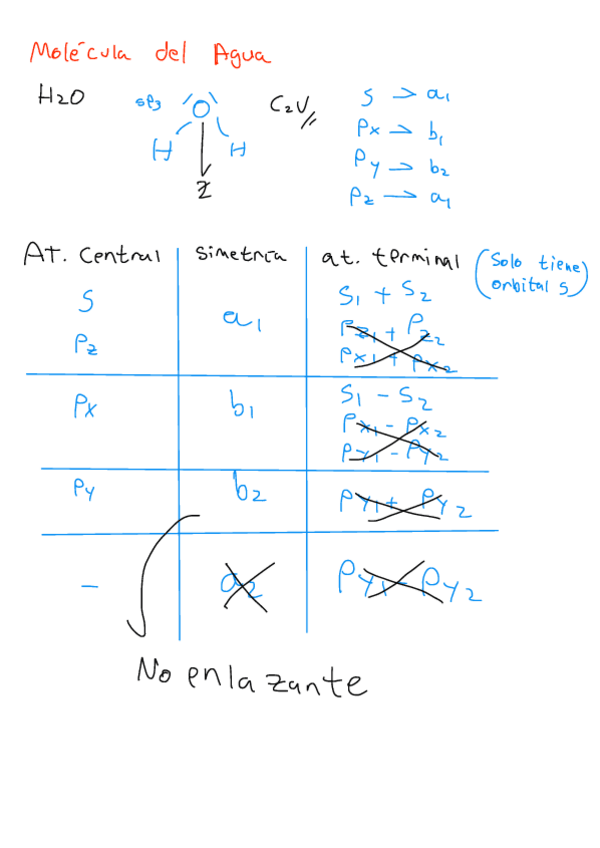 Molécula del Agua
H2O
sp3
O
H H
Z
C2V//
S → a1
Px → b1
Py → b2
Pz → a1
AT. Central simetría at. terminal (Solo tiene orbital s)
S
Pz
a1
S1 + S2
Pz1 + Pz2
Px1 + Px2
Px b1 S1 - S2
Px1 - Px2
Py1 - Py2
Py b2 Py1 + Py2
- a2 Py1 - Py2
No enlazante